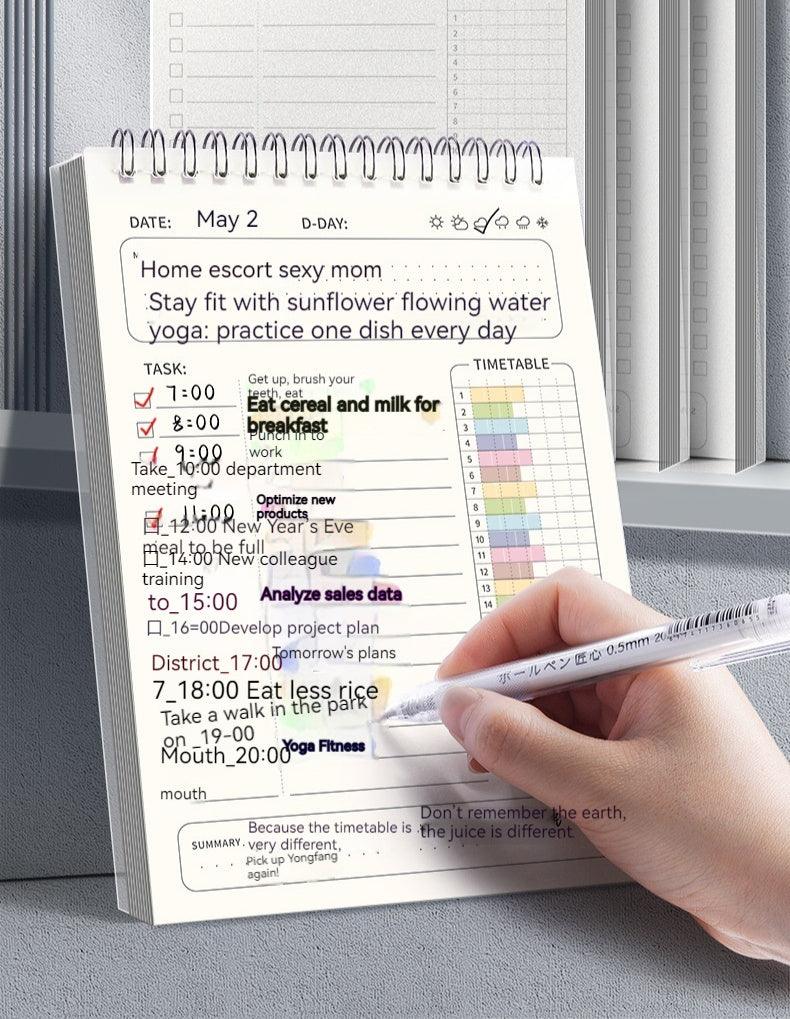 1
2
3
4
5
6
7
8
DATE: May 2 D-DAY:
Home escort sexy mom
Stay fit with sunflower flowing water
yoga: practice one dish every day
TASK:
TIMETABLE
7:00
Get up, brush your
teeth, eat
Eat cereal and milk for
breakfast
8:00
Punch in to
work
9:00
Take_10:00 department
meeting
11:00
Optimize new
products
口_12:00 New Year's Eve
meal to be full
口_14:00 New colleague
training
to_15:00
Analyze sales data
口_16=00Develop project plan
Tomorrow's plans
District_17:00
7_18:00 Eat less rice
Take a walk in the park
on _19-00
Mouth_20:00
Yoga Fitness
mouth
1
2
3
4
5
6
7
8
9
10
11
12
13
14
ボールペン 匠心 0.5mm
SUMMARY
Because the timetable is
very different,
Pick up Yongfang
again!
Don't remember the earth,
the juice is different